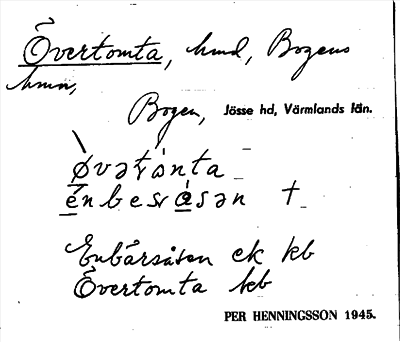 Övertomta, hmd, Bogens
hmn,
Bogen, Jösse hd, Värmlands län.
øvətånta
enbesråsən †
Enbärsåsen ek kb
Övertomta kb
PER HENNINGSSON 1945.